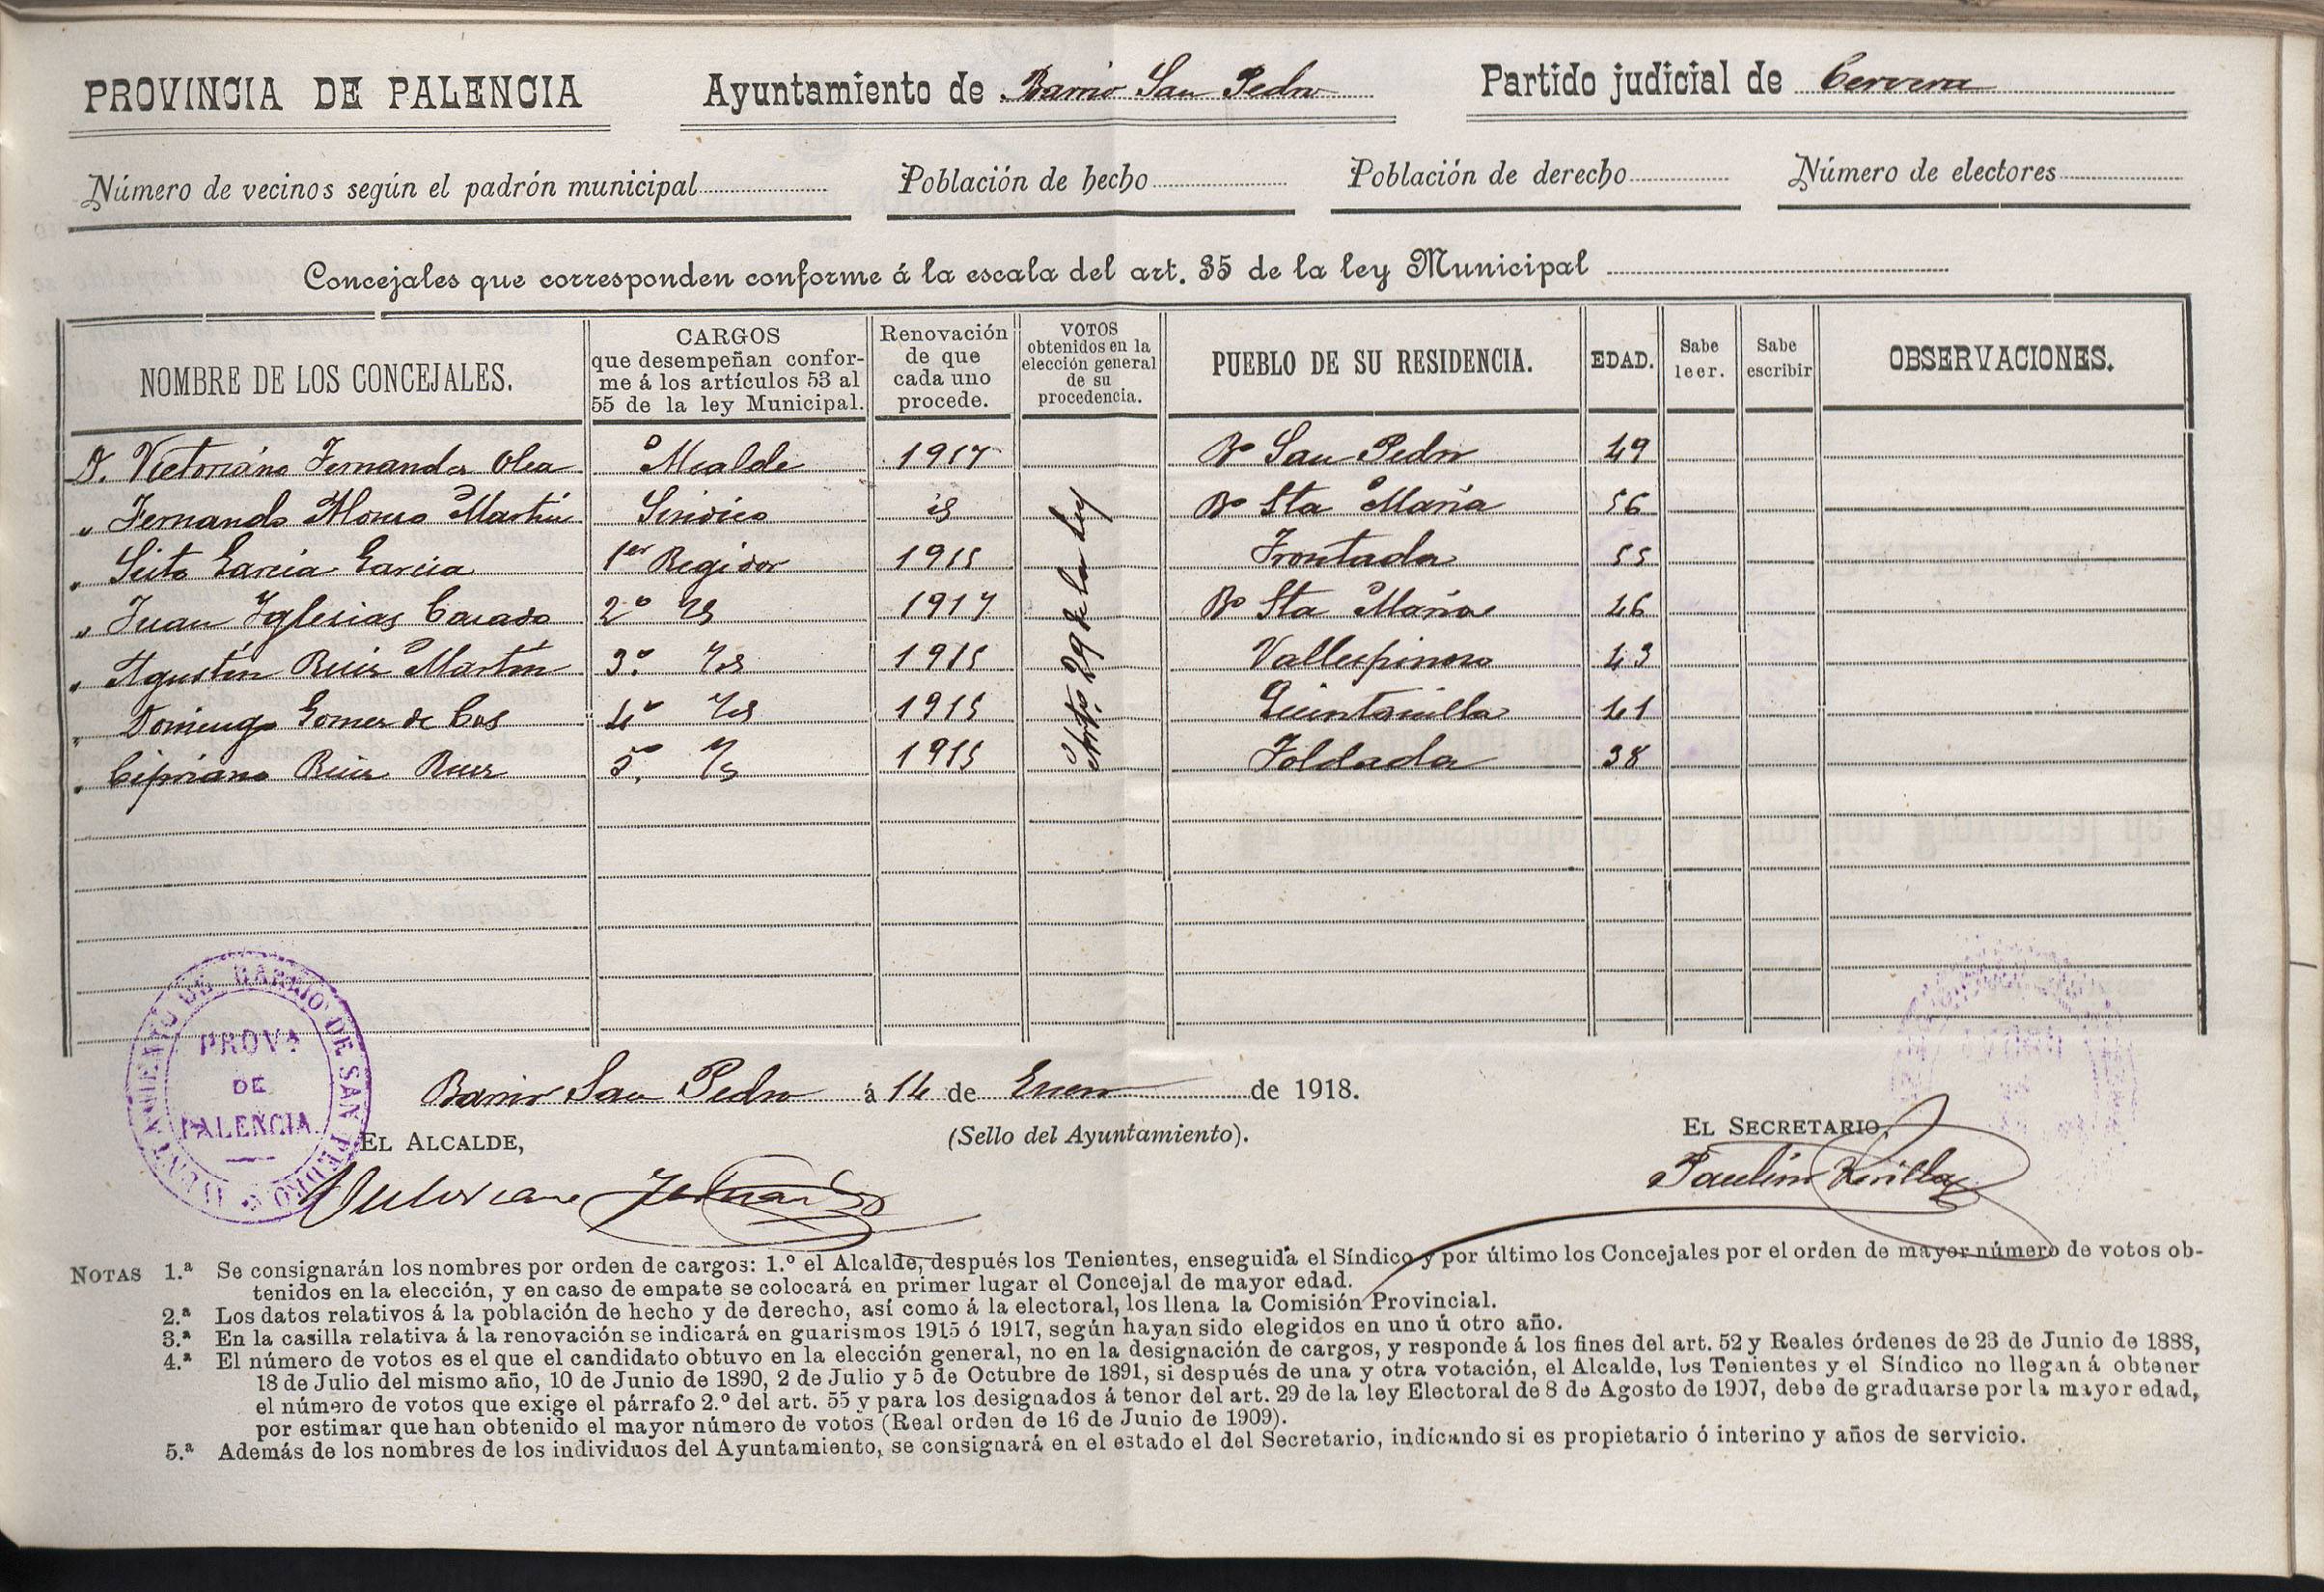 PROVINCIA DE PALENCIA Ayuntamiento de Barrio San Pedro Partido judicial de Cervera
Número de vecinos según el padrón municipal Población de hecho Población de derecho Número de electores
Concejales que corresponden conforme á la escala del art. 35 de la ley Municipal
NOMBRE DE LOS CONCEJALES. CARGOS que desempeñan conforme á los artículos 53 al 55 de la ley Municipal. Renovación de que cada uno procede. VOTOS obtenidos en la elección general de su procedencia. PUEBLO DE SU RESIDENCIA. EDAD. Sabe leer. Sabe escribir OBSERVACIONES.
D. Victoriano Fernandez Olea Alcalde 1917 Bº San Pedro 49
" Fernando Alonso Martin Sindico id Bº Sta Maria 56
" Sixto Garcia Garcia 1er Regidor 1915 Frontada 55
" Juan Iglesias 2º Id 1917 Bº Sta Maria 46
" Agustin Ruiz Martin 3º Id 1915 Vallespinoso 43
" Domingo Gomez de Cos 4º Id 1915 Quintanilla 41
" Cipriano Ruiz Ruiz 5º Id 1915 Foldada 38
29 de la ley
AYUNTAMIENTO DE BARRIO DE SAN PEDRO
PROVA
DE
PALENCIA
Barrio San Pedro á 14 de Enero de 1918.
EL ALCALDE, (Sello del Ayuntamiento). EL SECRETARIO,
Victoriano Fernandez Paulino
NOTAS 1.ª Se consignarán los nombres por orden de cargos: 1.º el Alcalde, después los Tenientes, enseguida el Síndico y por último los Concejales por el orden de mayor número de votos ob-
tenidos en la elección, y en caso de empate se colocará en primer lugar el Concejal de mayor edad.
2.ª Los datos relativos á la población de hecho y de derecho, así como á la electoral, los llena la Comisión Provincial.
3.ª En la casilla relativa á la renovación se indicará en guarismos 1915 ó 1917, según hayan sido elegidos en uno ú otro año.
4.ª El número de votos es el que el candidato obtuvo en la elección general, no en la designación de cargos, y responde á los fines del art. 52 y Reales órdenes de 23 de Junio de 1888,
18 de Julio del mismo año, 10 de Junio de 1890, 2 de Julio y 5 de Octubre de 1891, si después de una y otra votación, el Alcalde, los Tenientes y el Síndico no llegan á obtener
el número de votos que exige el párrafo 2.º del art. 55 y para los designados á tenor del art. 29 de la ley Electoral de 8 de Agosto de 1907, debe de graduarse por la mayor edad,
por estimar que han obtenido el mayor número de votos (Real orden de 16 de Junio de 1909).
5.ª Además de los nombres de los individuos del Ayuntamiento, se consignará en el estado el del Secretario, indicando si es propietario ó interino y años de servicio.